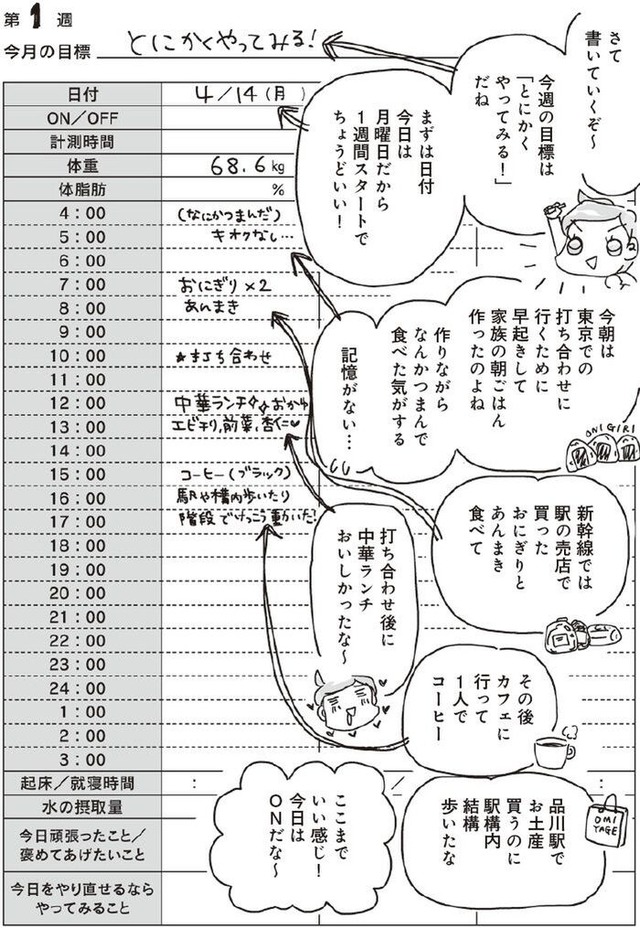 第1週
今月の目標 とにかくやってみる!
日付 4/14(月)
ON/OFF
計測時間
体重 68.6kg
体脂肪 %
4:00 (なにかつまんだ)
5:00 キオクなし…
6:00
7:00 おにぎり×2
8:00 あんまき
9:00
10:00 ★打ち合わせ
11:00
12:00 中華ランチ おかゆ
13:00 エビチリ,前菜,杏仁♥
14:00
15:00 コーヒー(ブラック)
16:00 駅や構内歩いたり
17:00 階段でけっこう動いた!
18:00
19:00
20:00
21:00
22:00
23:00
24:00
1:00
2:00
3:00
起床/就寝時間 : / :
水の摂取量
今日頑張ったこと/
褒めてあげたいこと
今日をやり直せるなら
やってみること
さて
書いていくぞ〜
今週の目標は
「とにかく
やってみる!」
だね
まずは日付
今日は
月曜日だから
1週間スタートで
ちょうどいい!
今朝は
東京での
打ち合わせに
行くために
早起きして
家族の朝ごはん
作ったのよね
ONIGIRI
作りながら
なんかつまんで
食べた気がする
記憶がない…
新幹線では
駅の売店で
買った
おにぎりと
あんまき
食べて
打ち合わせ後に
中華ランチ
おいしかったな〜
その後
カフェに
行って
1人で
コーヒー
品川駅で
お土産
買うのに
駅構内
結構
歩いたな
OMI
YAGE
ここまで
いい感じ!
今日は
ONだな〜